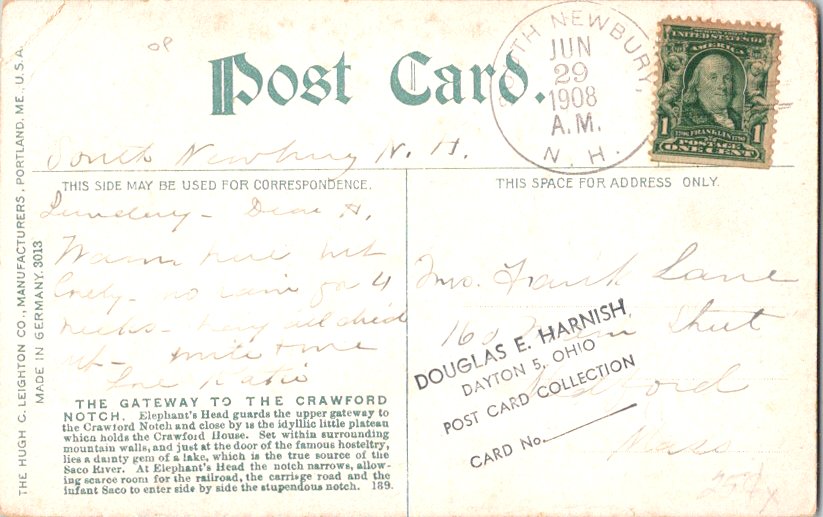 Post Card.
SOUTH NEWBURY,
JUN
29
1908
A.M.
N. H.
UNITED STATES OF
AMERICA
1 FRANKLIN 1
POSTAGE
ONE CENT
South Newbury N. H.
THIS SIDE MAY BE USED FOR CORRESPONDENCE.
Sunday - Dear A,
Warm here but
lovely - no rain for 4
weeks - hay all dried
up - write to me
Love Katie
THE GATEWAY TO THE CRAWFORD
NOTCH. Elephant's Head guards the upper gateway to
the Crawford Notch and close by is the idyllic little plateau
which holds the Crawford House. Set within surrounding
mountain walls, and just at the door of the famous hosteltry,
lies a dainty gem of a lake, which is the true source of the
Saco River. At Elephant's Head the notch narrows, allow-
ing scarce room for the railroad, the carriage road and the
infant Saco to enter side by side the stupendous notch. 189.
THIS SPACE FOR ADDRESS ONLY.
Mrs. Frank Lane
Street
Medford
Mass
DOUGLAS E. HARNISH,
DAYTON 5, OHIO
POST CARD COLLECTION
CARD No.
THE HUGH C. LEIGHTON CO., MANUFACTURERS, PORTLAND, ME., U.S.A.
MADE IN GERMANY. 3013